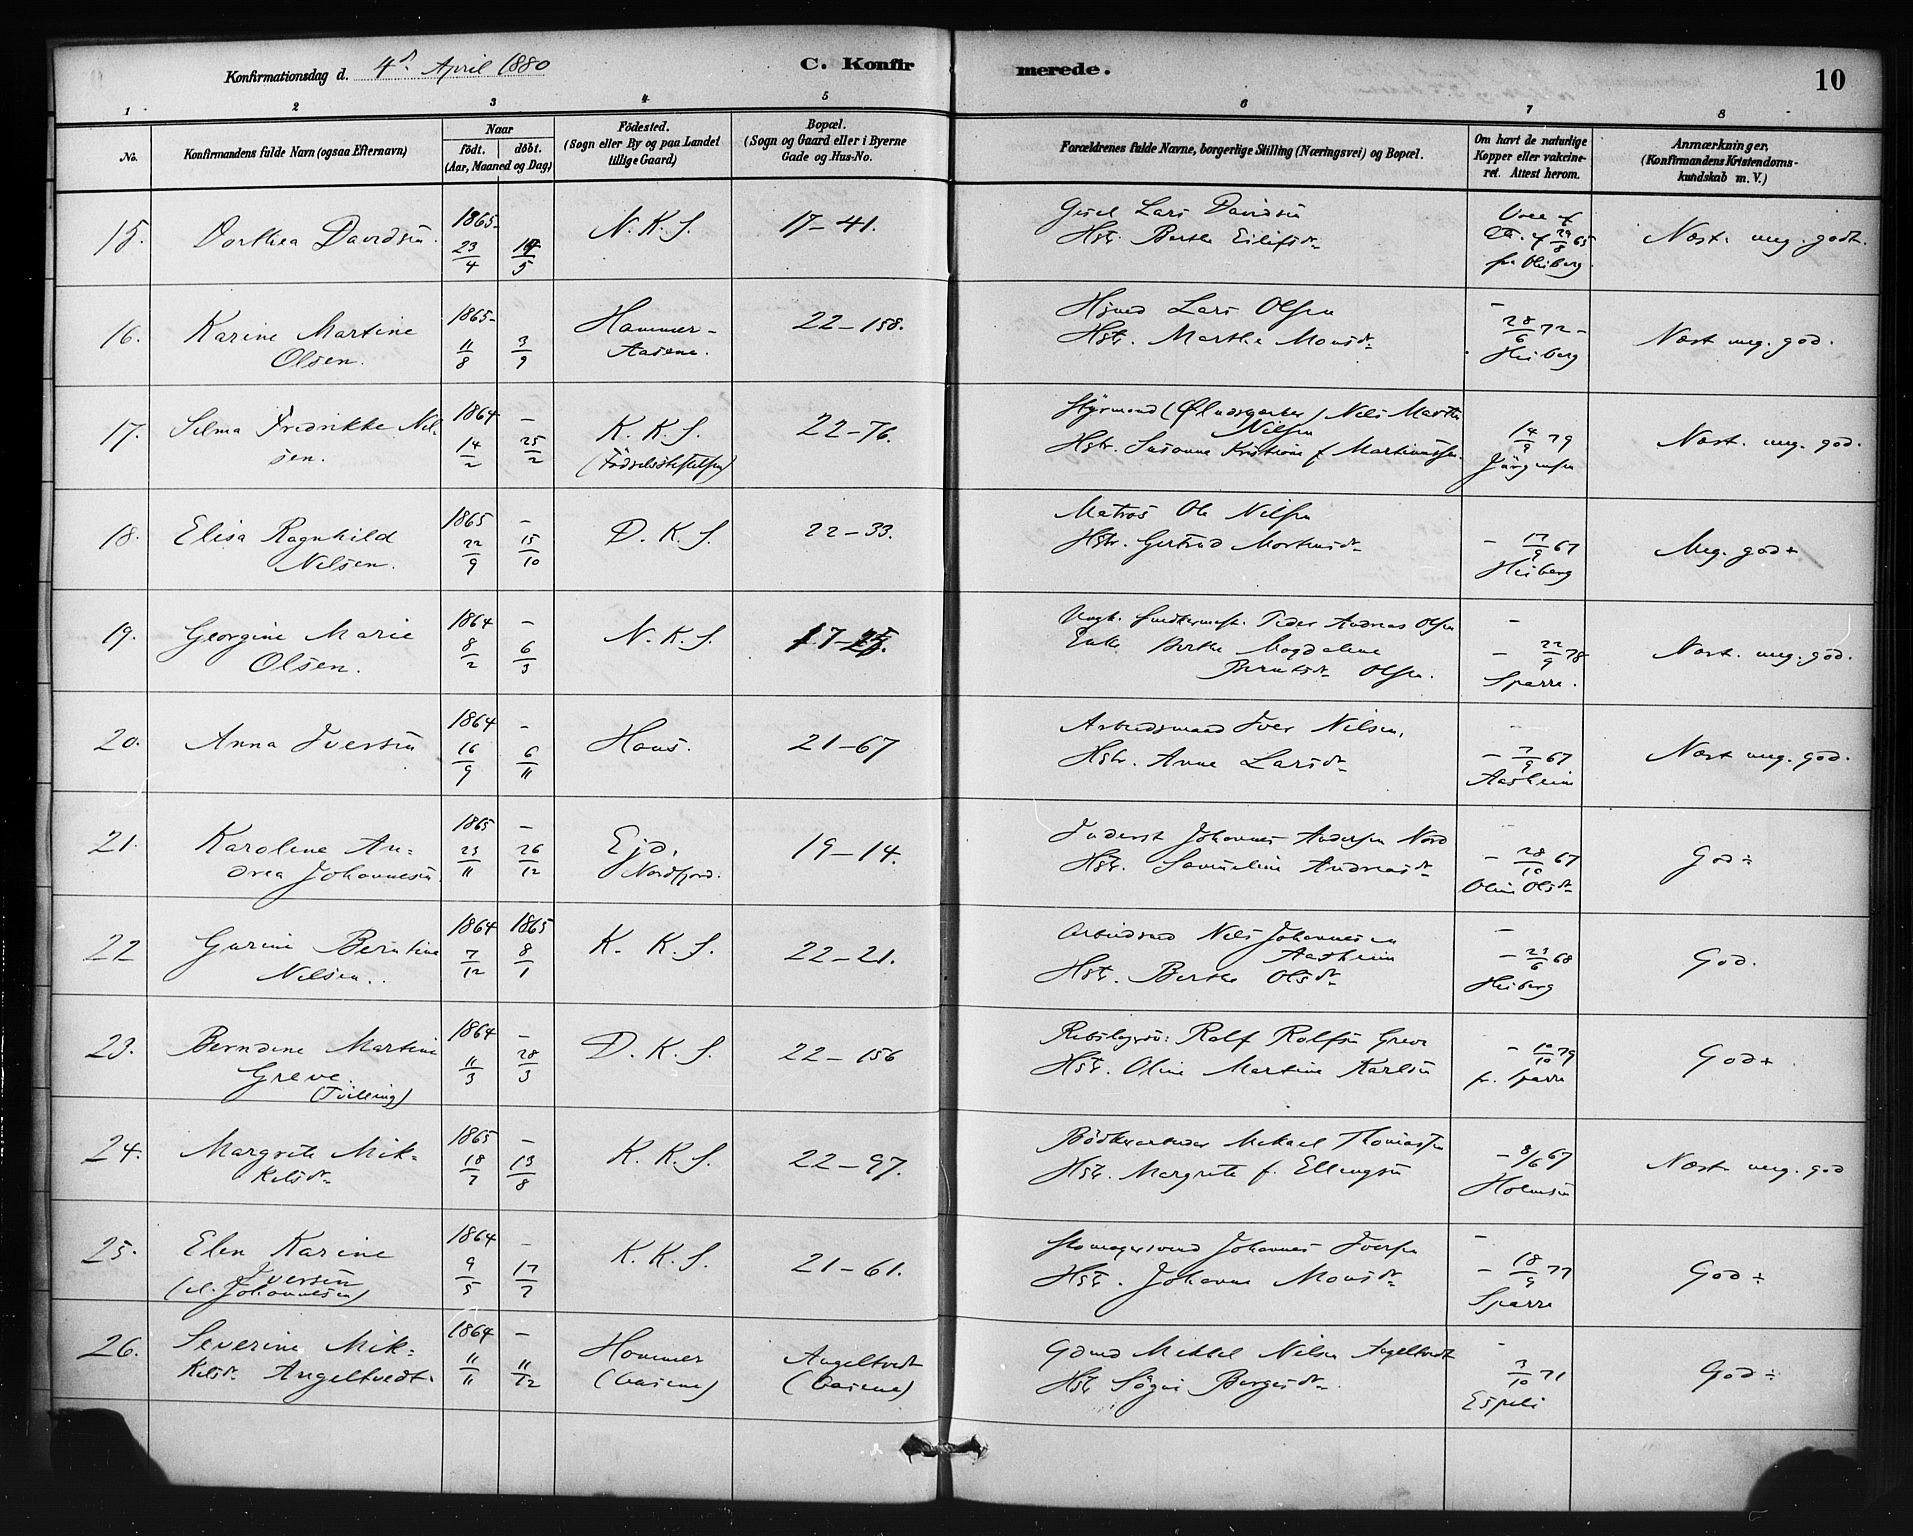 Konfirmationsdag d. 4d April 1880
C. Konfirmerede.
10
1 2 3 4 5 6 7 8
No.
Konfirmandens fulde Navn (ogsaa Efternavn)
Naar
födt. döbt.
(Aar, Maaned og Dag)
Födested.
(Sogn eller By og paa Landet
tillige Gaard)
Bopæl.
(Sogn og Gaard eller i Byerne
Gade og Hus-No.
Forældrenes fulde Navne, borgerlige Stilling (Næringsvei) og Bopæl.
Om havt de naturlige
Kopper eller vakcine-
ret. Attest herom.
Anmærkninger,
(Konfirmandens Kristendoms-
kundskab m. V.)
15. Dorthea Davidsen. 1865- 23/4 14/5 N. K. S. 17-41.
Lars Davidsen
Hstr. Berthe Eilifsdr
29/8 65
Næst. meg. godt.
16. Karine Martine
Olsen.
1865- 11/8 3/9
Hammer-
Aasene.
22-158.
Lars Olsen
Hstr. Marthe Monsdr
- 28/6 72 -
Heiberg
Næst meg. god.
17. Selma Fredrikke Nil-
sen.
1864 - 14/2 25/2
K. K. S.
(Födselsstiftelsen)
22-76.
Styrmand (Øludsgerber) Nils Martin
Nilsen
Hstr. Susanne Kristiane f Martinussen.
14/9 79
Jürgensen
Næst. meg. god.
18. Elisa Ragnhild
Nilsen.
1865 - 22/9 15/10
D. K. S.
22-33.
Matros Ole Nilsen
Hstr. Gertrud Mortensdr
- 17/9 67
Heiberg
Meg. god +
19. Georgine Marie
Olsen.
1864 - 8/2 6/3
N. K. S.
17-25.
Peder Andreas Olsen
Enke Berthe Magdalene
Berntsdr Olsen.
- 22/9 78
Sparre.
Næst. meg. god.
20. Anna Iversen
1864 - 16/9 6/11
Haus.
21-67
Arbeidsmand Iver Nilsen.
Hstr. Anne Larsdr
- 7/9 67
Aasheim
Næst meg. god.
21. Karolene An-
drea Johannesen
1865 - 23/11 26/12
Ejd,
Nordfjord.
19-14.
Inderst Johannes Andersen Nord
Hstr. Samueline Andreasdr
- 28/10 67
Oline Olsdr
God ÷
22 Gurine Berntine
Nilsen.
1864 1865 7/12 8/1
K. K. S.
22-21.
Arbeidsmd Nils Johannesen
Aasheim
Hstr. Berthe Olsdr
- 23/6 68
Heiberg
God.
23. Berndine Martine
Greve
(Tvilling)
1864 - 11/3 28/3
D. K. S.
22-156
Rolf Rolfsen Greve
Hstr. Oline Martine Karlsen
- 10/10 79
fr. Sparre
God +
24. Margrete Mik-
kelsdr
1865 - 18/7 13/8
K. K. S.
22-97.
Bödkerarbeider Mikael Thomassen
Hstr. Margrete f. Ellingsen
- 8/6 67
Holmsen
Næst meg. god
25. Elen Karine
Iversen
(el. Johannesen)
1864 - 9/5 17/7
K. K. S.
21-61.
Skomagersvend Johannes Iversen
Hstr. Johanne Monsdr
- 18/9 77
Sparre
God ÷
26. Severine Mik-
kelsdr. Angeltvedt.
1864 - 11/11 11/12
Hammer
(Aasene)
Angeltvedt
(Aasene)
Gdmd Mikkel Nilsen Angeltvedt
Hstr Bergesdr
3/10 71
Espeli
God ÷